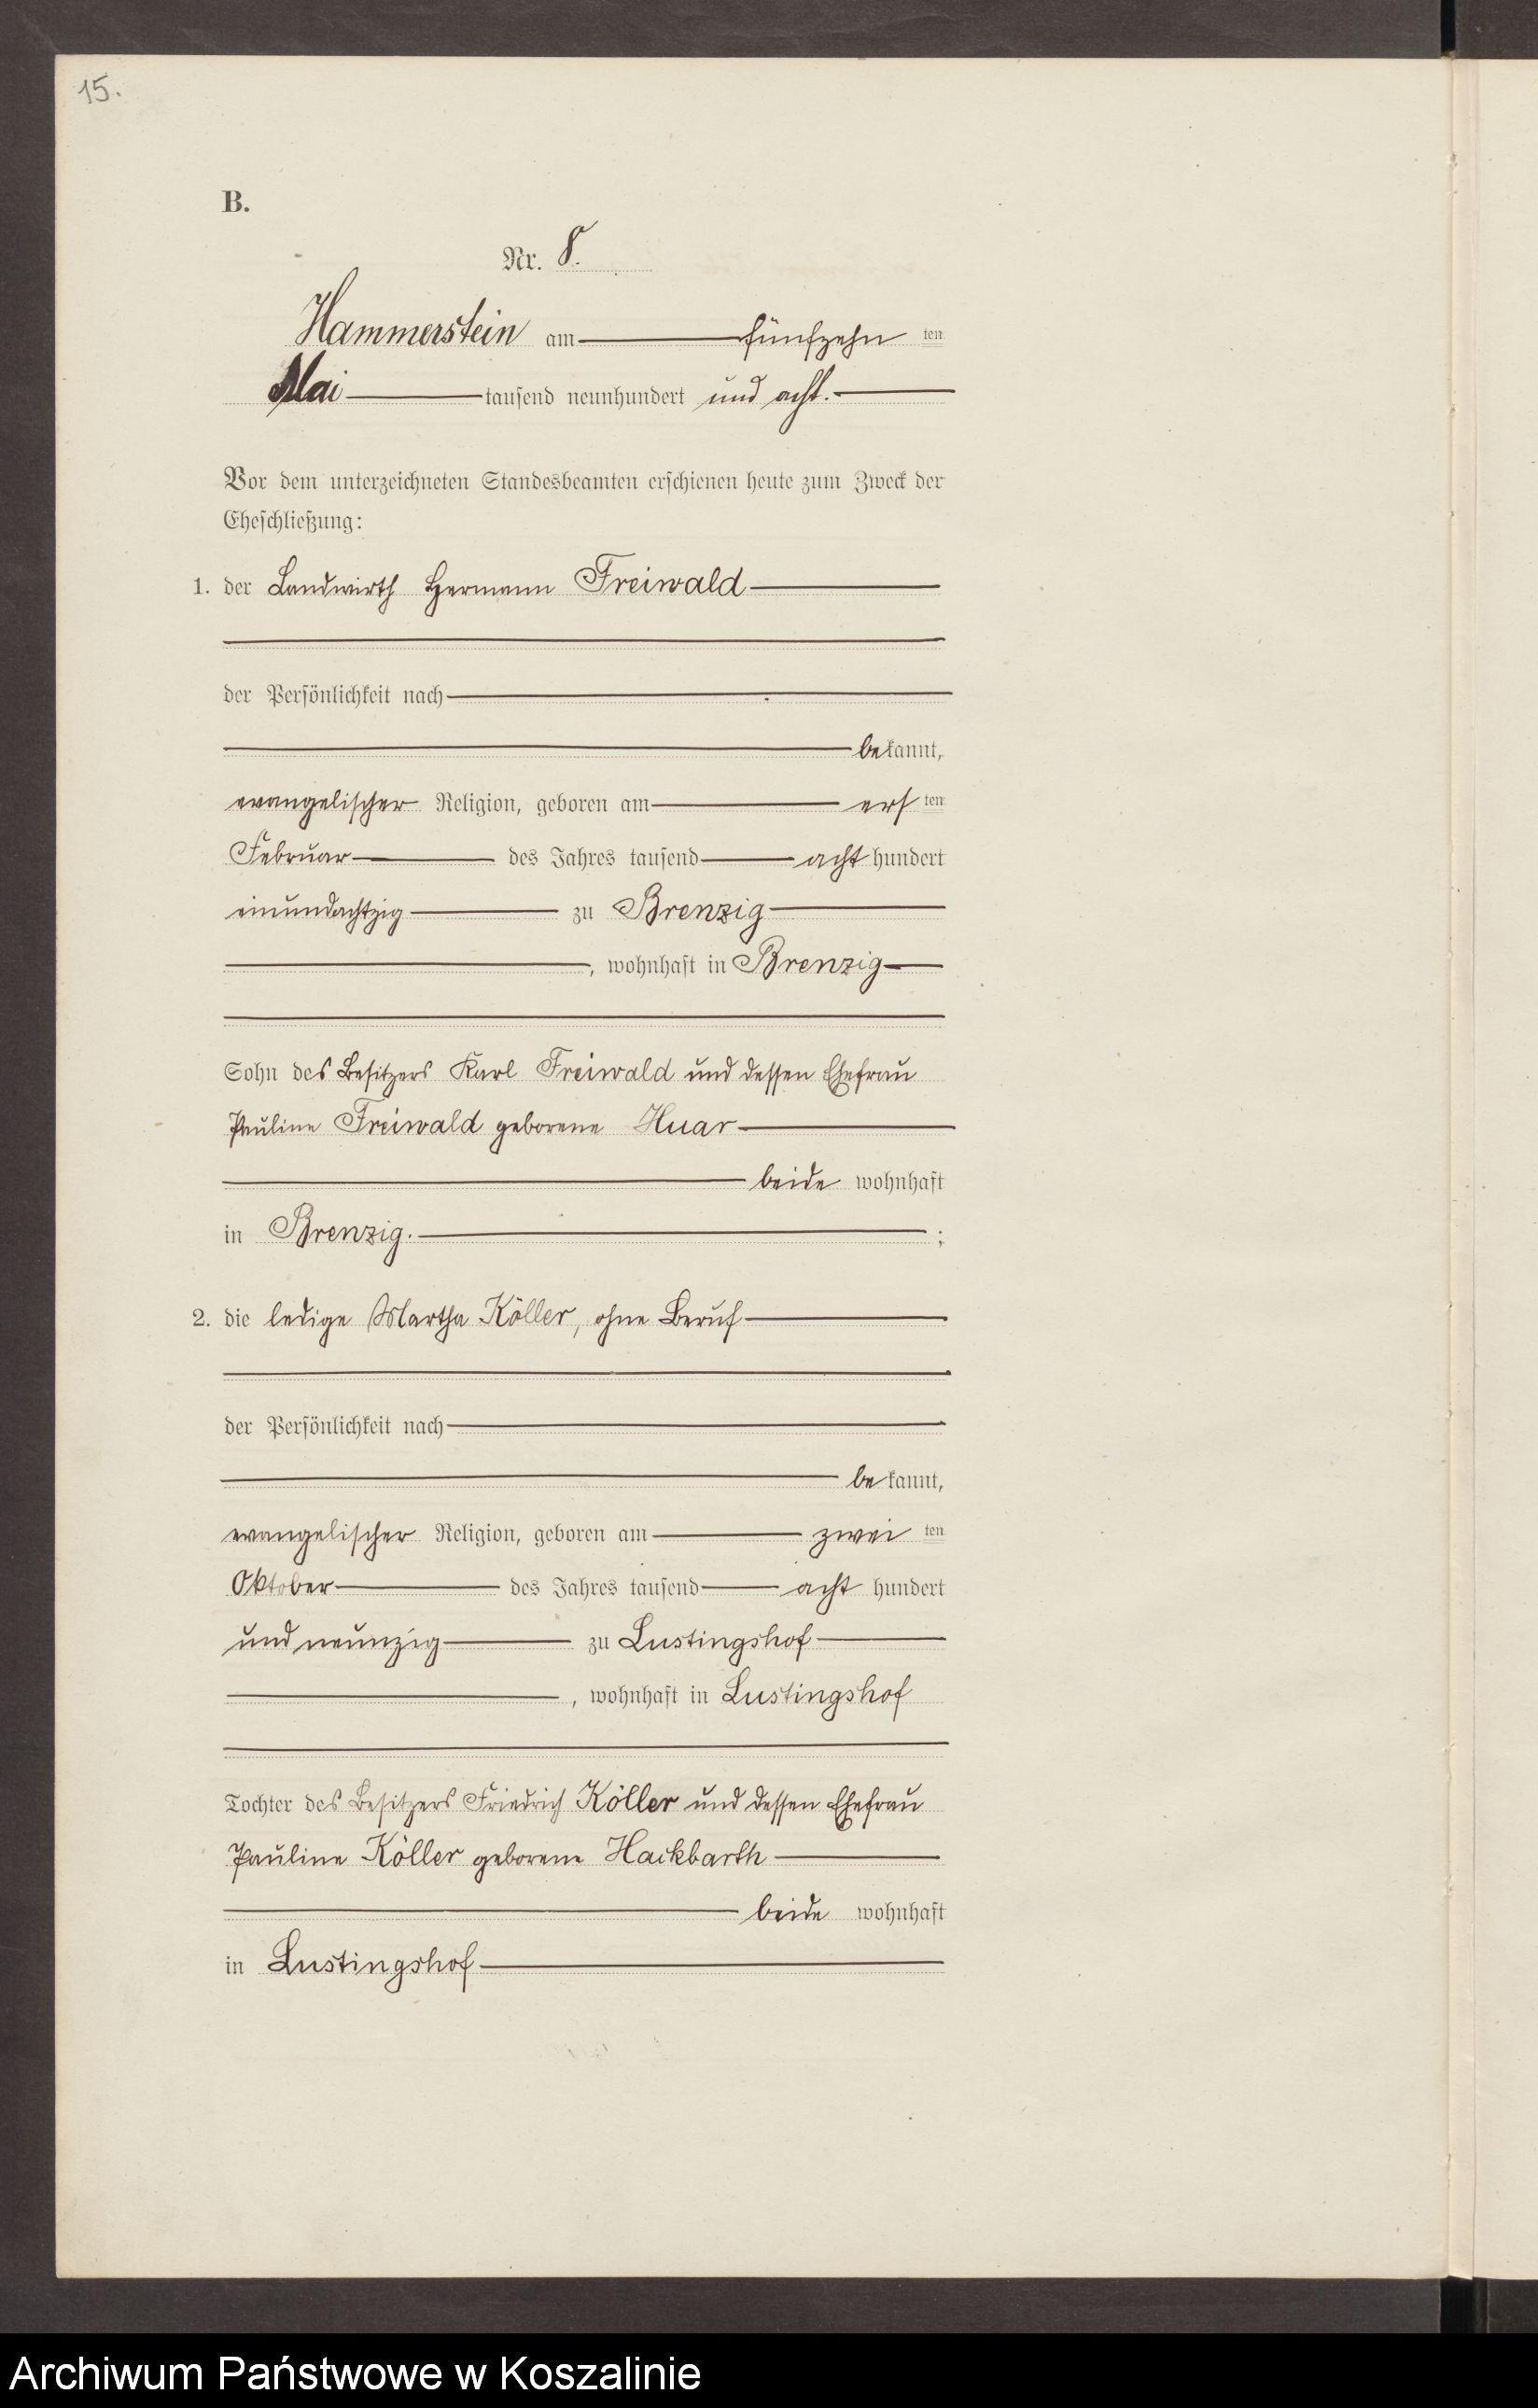 15.
B.
Nr. 8.
Hammerstein am fünfzehn ten
Mai tausend neunhundert und acht.
Vor dem unterzeichneten Standesbeamten erschienen heute zum Zweck der
Eheschließung:
1. der Landwirth Hermann Freiwald
der Persönlichkeit nach
bekannt,
evangelischer Religion, geboren am ersten
Februar des Jahres tausend acht hundert
einundachtzig zu Brenzig
, wohnhaft in Brenzig
Sohn des Besitzers Karl Freiwald und dessen Ehefrau
Pauline Freiwald geborene Huar
beide wohnhaft
in Brenzig. ;
2. die ledige Martha Köller, ohne Beruf
der Persönlichkeit nach
bekannt,
evangelischer Religion, geboren am zwei ten
Oktober des Jahres tausend acht hundert
und neunzig zu Lustingshof
, wohnhaft in Lustingshof
Tochter des Besitzers Friedrich Köller und dessen Ehefrau
Pauline Köller geborene Hackbarth
beide wohnhaft
in Lustingshof
Archiwum Państwowe w Koszalinie